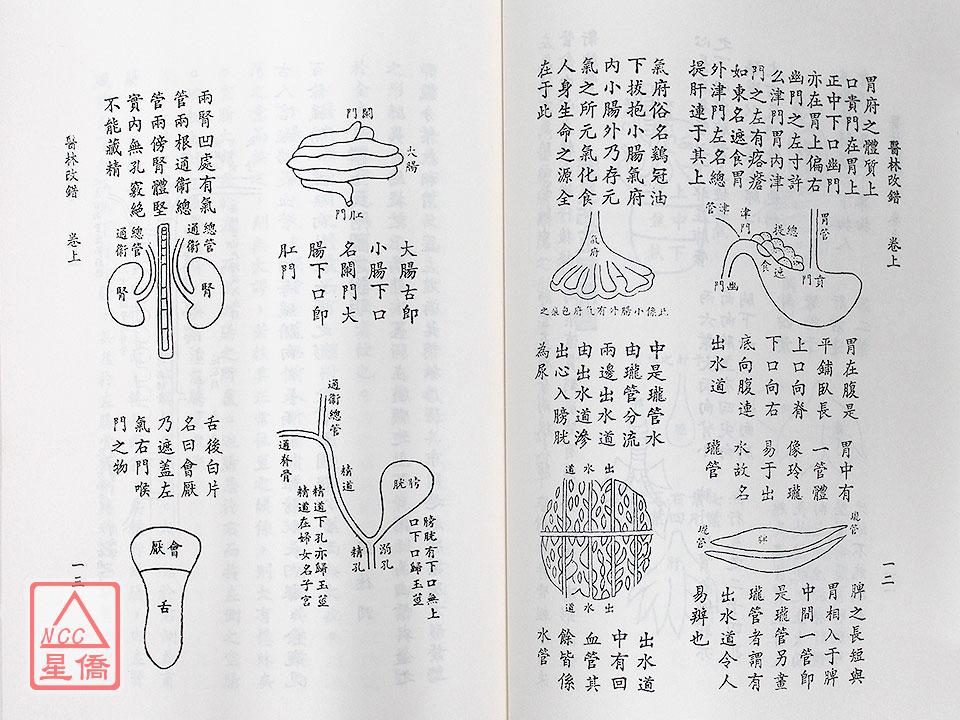 醫林改錯 卷上
一二
胃府之體質上
口賁門在胃上
正中下口幽門
亦在胃上偏右
幽門之左寸許
么津門胃內津
門之左有疙瘩
如東名遮食胃
外津門左名總
提肝連于其上
胃管
賁門
總提
遮食
津門
津管
幽門
胃在腹是
平鋪臥長
上口向脊
下口向右
底向腹連
出水道
氣府俗名鷄冠油
下拔抱小腸氣府
內小腸外乃存元
氣之所元氣化食
人身生命之源全
在于此
氣府
此係小腸外有氣府包裹之
胃中有
一管體
像玲瓏
易于出
水故名
瓏管
瓏管
脾
瓏管
脾之長短與
胃相入于脾
中間一管即
是瓏管另畫
瓏管者謂有
出水道令人
易辨也
中是瓏管水
由瓏管分流
兩邊出水道
由出水道滲
出沁入膀胱
為尿
出水道
出水道
出水道
中有回
血管其
餘皆係
水管
闌門
大腸
肛門
大腸古即
小腸下口
名闌門大
腸下口即
肛門
兩腎凹處有氣
管兩根通衛總
管兩傍腎體堅
實內無孔竅絕
不能藏精
總管
通衛
總管
通衛
腎
腎
通衛總管
通脊骨
精道
膀胱
溺孔
精孔
膀胱有下口無上
口下口歸玉莖
精道下孔亦歸玉莖
精道在婦女名子宮
舌後白片
名曰會厭
乃遮蓋左
氣右門喉
門之物
會厭
舌
醫林改錯 卷上
一三
NCC
星僑